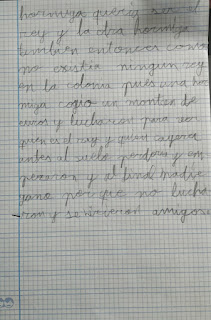 hormiga queria ser el
rey y la otra hormiga
tambien entonces como
no existia ningun rey
en la colonia pues una hor
miga cogio un monton de
y lucharon para ver
quien es el rey y quien cayera
antes al suelo perdera y em
pezaron y al final nadie
gano porque no lucha
ron y se hicieron amigos